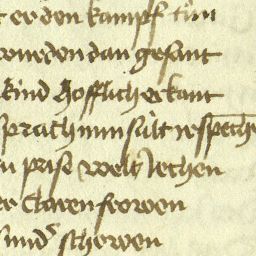 t er den kampf tün
wurden dan gesant
kind hofflich erkant
sprach nun sült ir sprechen
n prise welt iechen
er claren frowen
sunder schowen